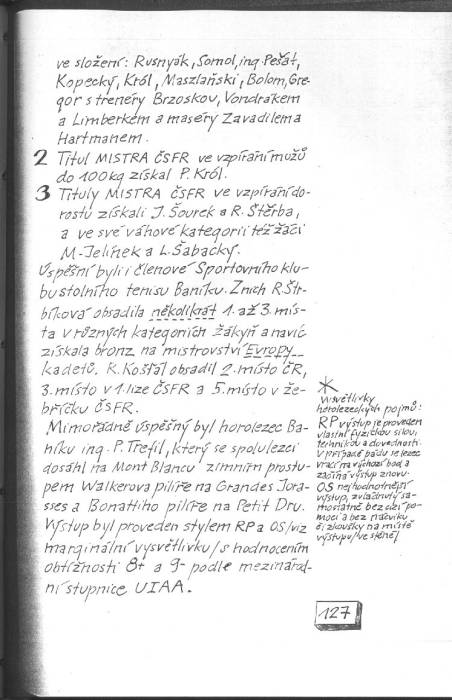 ve složení: Rusnyák, Somol, ing. Pešat,
Kopecký, Król, Maszlański, Bolom, Gre-
gor s trenéry Brzoskou, Vondrákem
a Limberkem a maséry Zavadilem a
Hartmanem.
2 Titul MISTRA ČSFR ve vzpírání mužů
do 100 kg získal P. Król.
3 Tituly MISTRA ČSFR ve vzpírání do-
rostu získali J. Šourek a R. Štěrba,
a ve své váhové kategorii též žáci
M. Jelínek a L. Šabacký.
Úspěšní byli i členové Sportovního klu-
bu stolního tenisu Baníku. Z nich R. Štr-
bíková obsadila několikrát 1. až 3. mís-
ta v různých kategoriích žákyň a navíc
získala bronz na mistrovství Evropy
kadetů. R. Košťál obsadil 2. místo ČR,
3. místo v 1. lize ČSFR a 5. místo v že-
bříčku ČSFR.
Mimořádně úspěšný byl horolezec Ba-
níku ing. P. Trefil, který se spolulezci
dosáhl na Mont Blancu zimním prostu-
pem Walkerova pilíře na Grandes Jora-
sses a Bonattiho pilíře na Petit Dru.
Výstup byl proveden stylem RP a OS /viz
marginální vysvětlivku/ s hodnocením
obtížnosti 8+ a 9- podle mezinárod-
ní stupnice UIAA.
*
Vysvětlivky
horolezeckých pojmů:
RP výstup je proveden
vlastní fyzickou silou,
technikou a dovedností.
V případě pádu se lezec
vrací na výchozí bod a
začíná výstup znovu.
OS nejhodnotnější
výstup, zvládnutý sa-
mostatně bez cizí po-
moci a bez nácviku
či zkoušky na místě
výstupu /ve stěně/
127